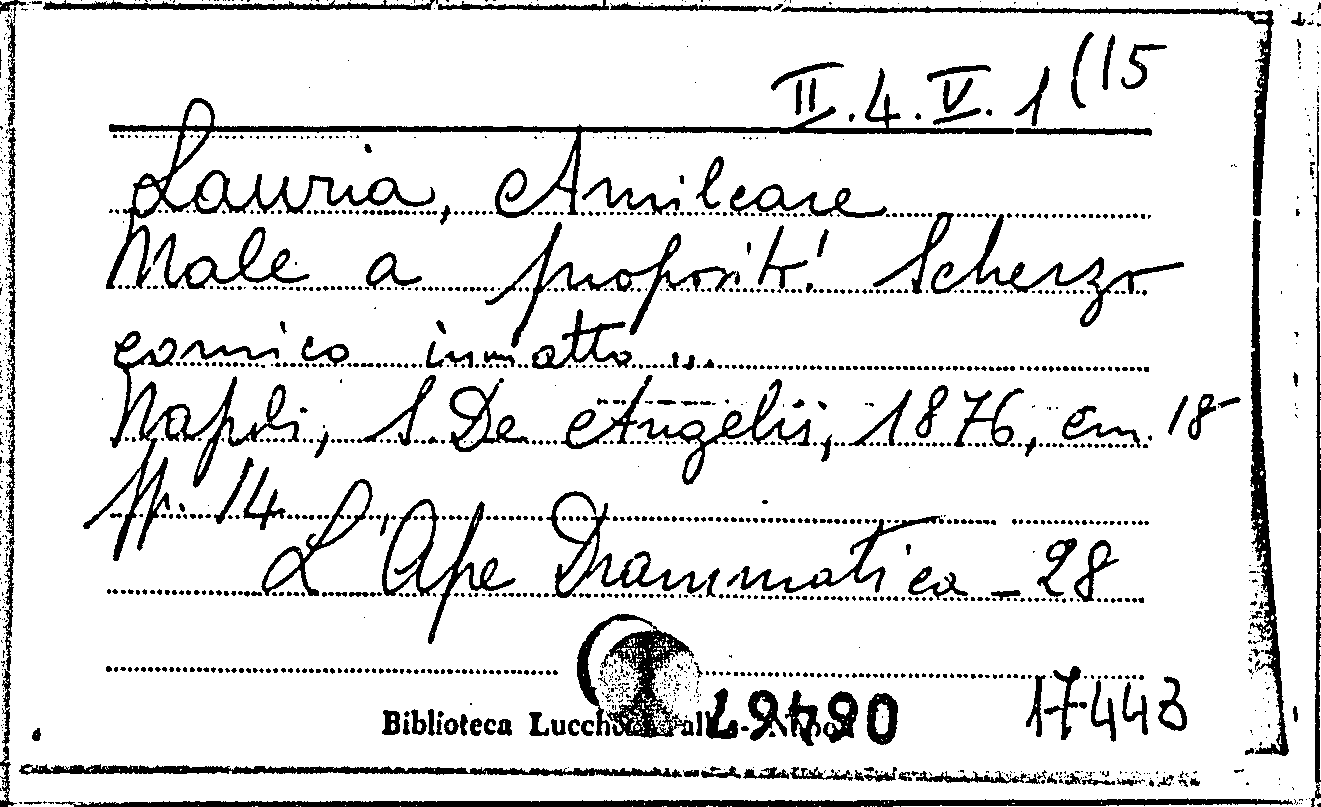 II.4.V.1(15
Lauria, Amilcare
Male a proposito! Scherzo
comico in un atto ...
Napoli, S. De Angelis, 1876, cm. 18
pp. 14
L'Ape Drammatica - 28
17443
Biblioteca